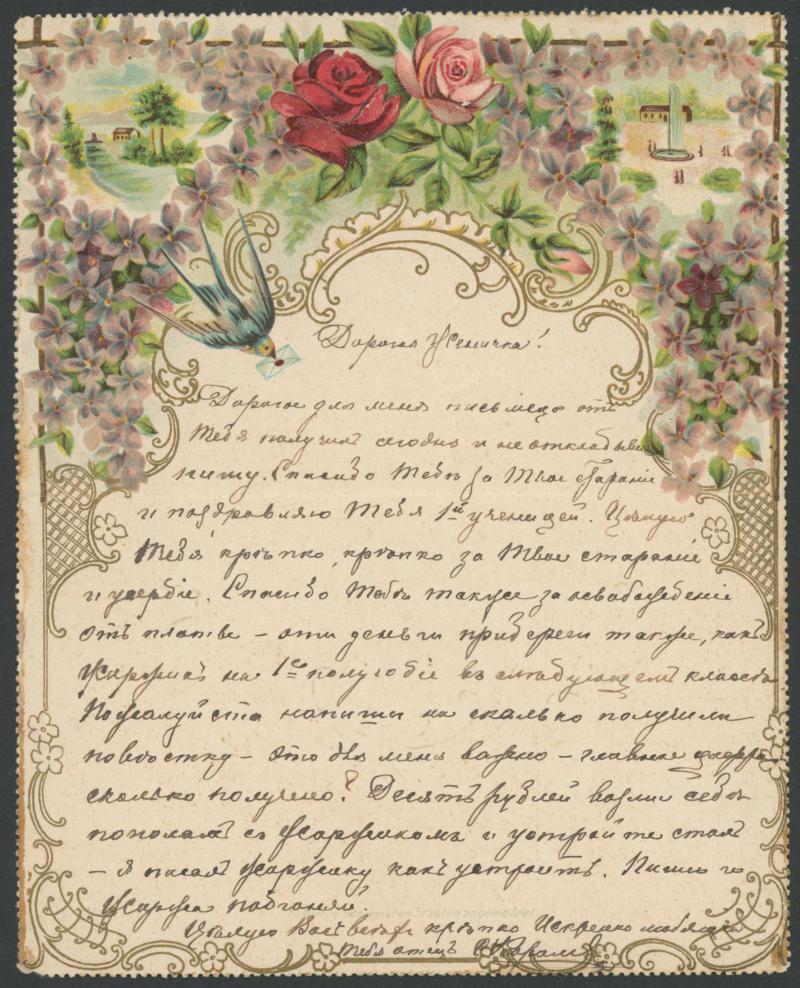 Дорогая Женичка!
Дорогое для меня письмецо отъ
Тебя получилъ сегодня и не откладывая
пишу. Спасибо Тебѣ за Твое старанiе
и поздравляю Тебя 1й ученицей. Цѣлую
Тебя крѣпко, крѣпко за Твое старанiе
и усердiе. Спасибо Тебѣ также за освобожденiе
отъ платы – эти деньги прибереги также, какъ
на 1ое полугодiе въ слѣдующемъ классѣ
Пожалуйста напиши на сколько получили
повѣстку – это для меня важно – главное
сколько получено? Десять рублей возьми себѣ
пополамъ съ и устройте столъ
– я писалъ какъ устроить. Пиши и
подгоняй.
Цѣлую Васъ крѣпко Искренно любящiй
Тебя отецъ